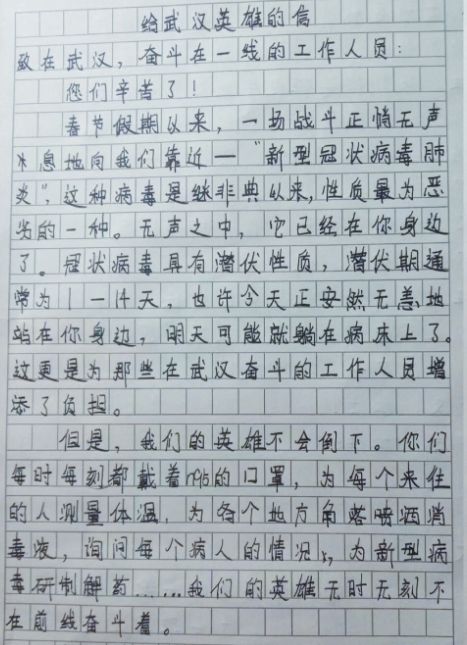 给武汉英雄的信
致在武汉，奋斗在一线的工作人员：
您们辛苦了！
春节假期以来，一场战斗正悄无声
息地向我们靠近—“新型冠状病毒肺
炎”，这种病毒是继非典以来，性质最为恶
劣的一种。无声之中，它已经在你身边
了。冠状病毒具有潜伏性质，潜伏期通
常为1—14天，也许今天正安然无恙地
站在你身边，明天可能就躺在病床上了。
这更是为那些在武汉奋斗的工作人员增
添了负担。
但是，我们的英雄不会倒下。你们
每时每刻都戴着n95的口罩，为每个来往
的人测量体温，为各个地方角落喷洒消
毒液，询问每个病人的情况，为新型病
毒研制解药……我们的英雄无时无刻不
在前线奋斗着。